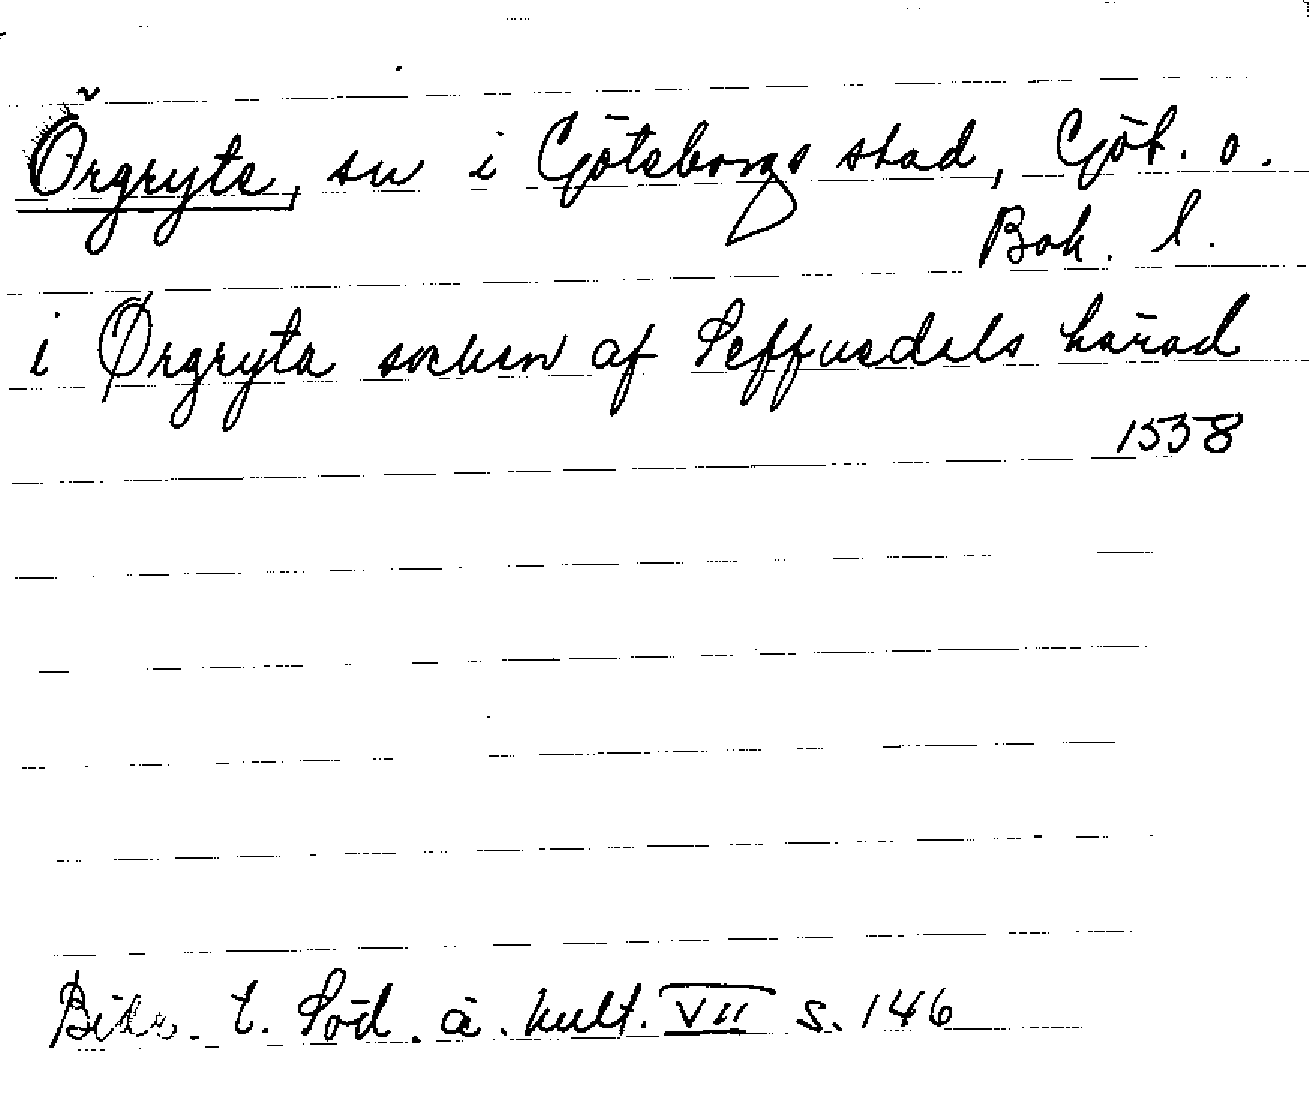 Örgryte, sn i Göteborgs stad, Göt. o.
Boh. l.
i Ørgryta socken af Seffuedals härad
1538
Bidr. t. Söd. ä. kult. VII s. 146